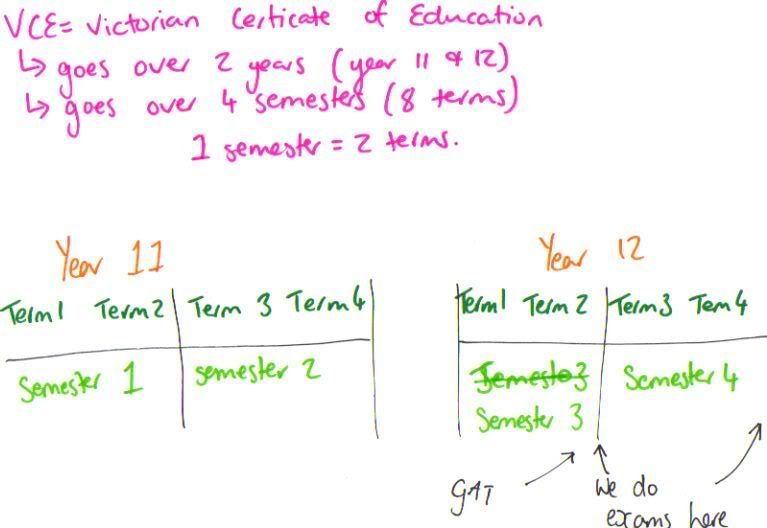 VCE = Victorian Certicate of Education
↳ goes over 2 years (year 11 & 12)
↳ goes over 4 semesters (8 terms)
1 semester = 2 terms.
Year 11
Year 12
Term 1 Term 2 Term 3 Term 4
Term 1 Term 2 Term 3 Tem 4
Semester 1 semester 2
Semester 4
Semester 3
GAT
We do
exams here